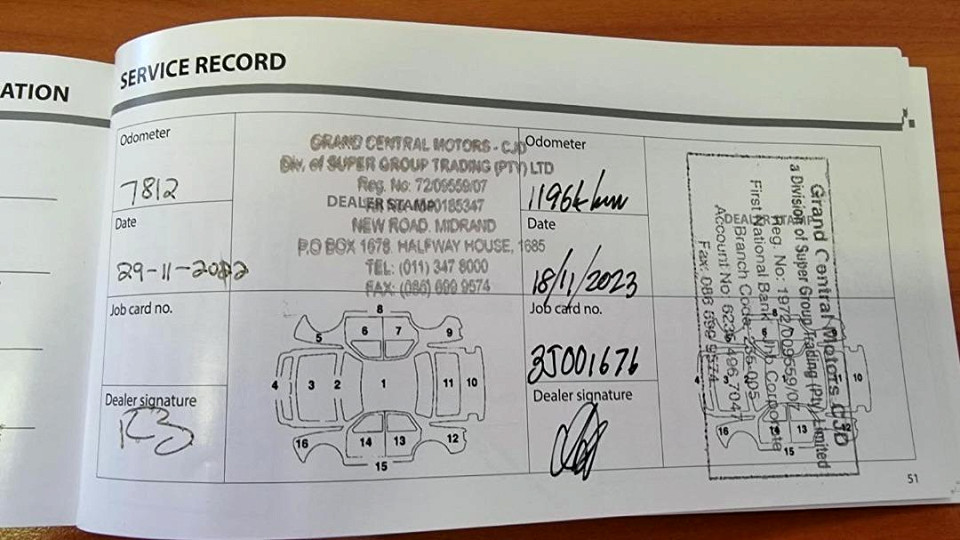 ATION
SERVICE RECORD
Odometer
7812
Date
29-11-2022
Job card no.
Dealer signature
GRAND CENTRAL MOTORS - CJD
Div. of SUPER GROUP TRADING (PTY) LTD
Reg. No: 72/09559/07
DEALER STAMP
NEW ROAD, MIDRAND
P.O BOX 1678, HALFWAY HOUSE, 1685
TEL: (011) 347 8000
FAX: (086) 699 9574
8
5 6 7 9
4 3 2 1 11 10
16 14 13 12
15
Odometer
Date
18/11/2023
Job card no.
3J001676
Dealer signature
Grand Central Motors CJD
a Division of Super Group Trading (Pty) Limited
Reg. No: 1972/009559/07
DEALER STAMP
First National Bank
Branch Code:
Account No:
Fax: 086 699 9574
4 10
16 13 12
15
51